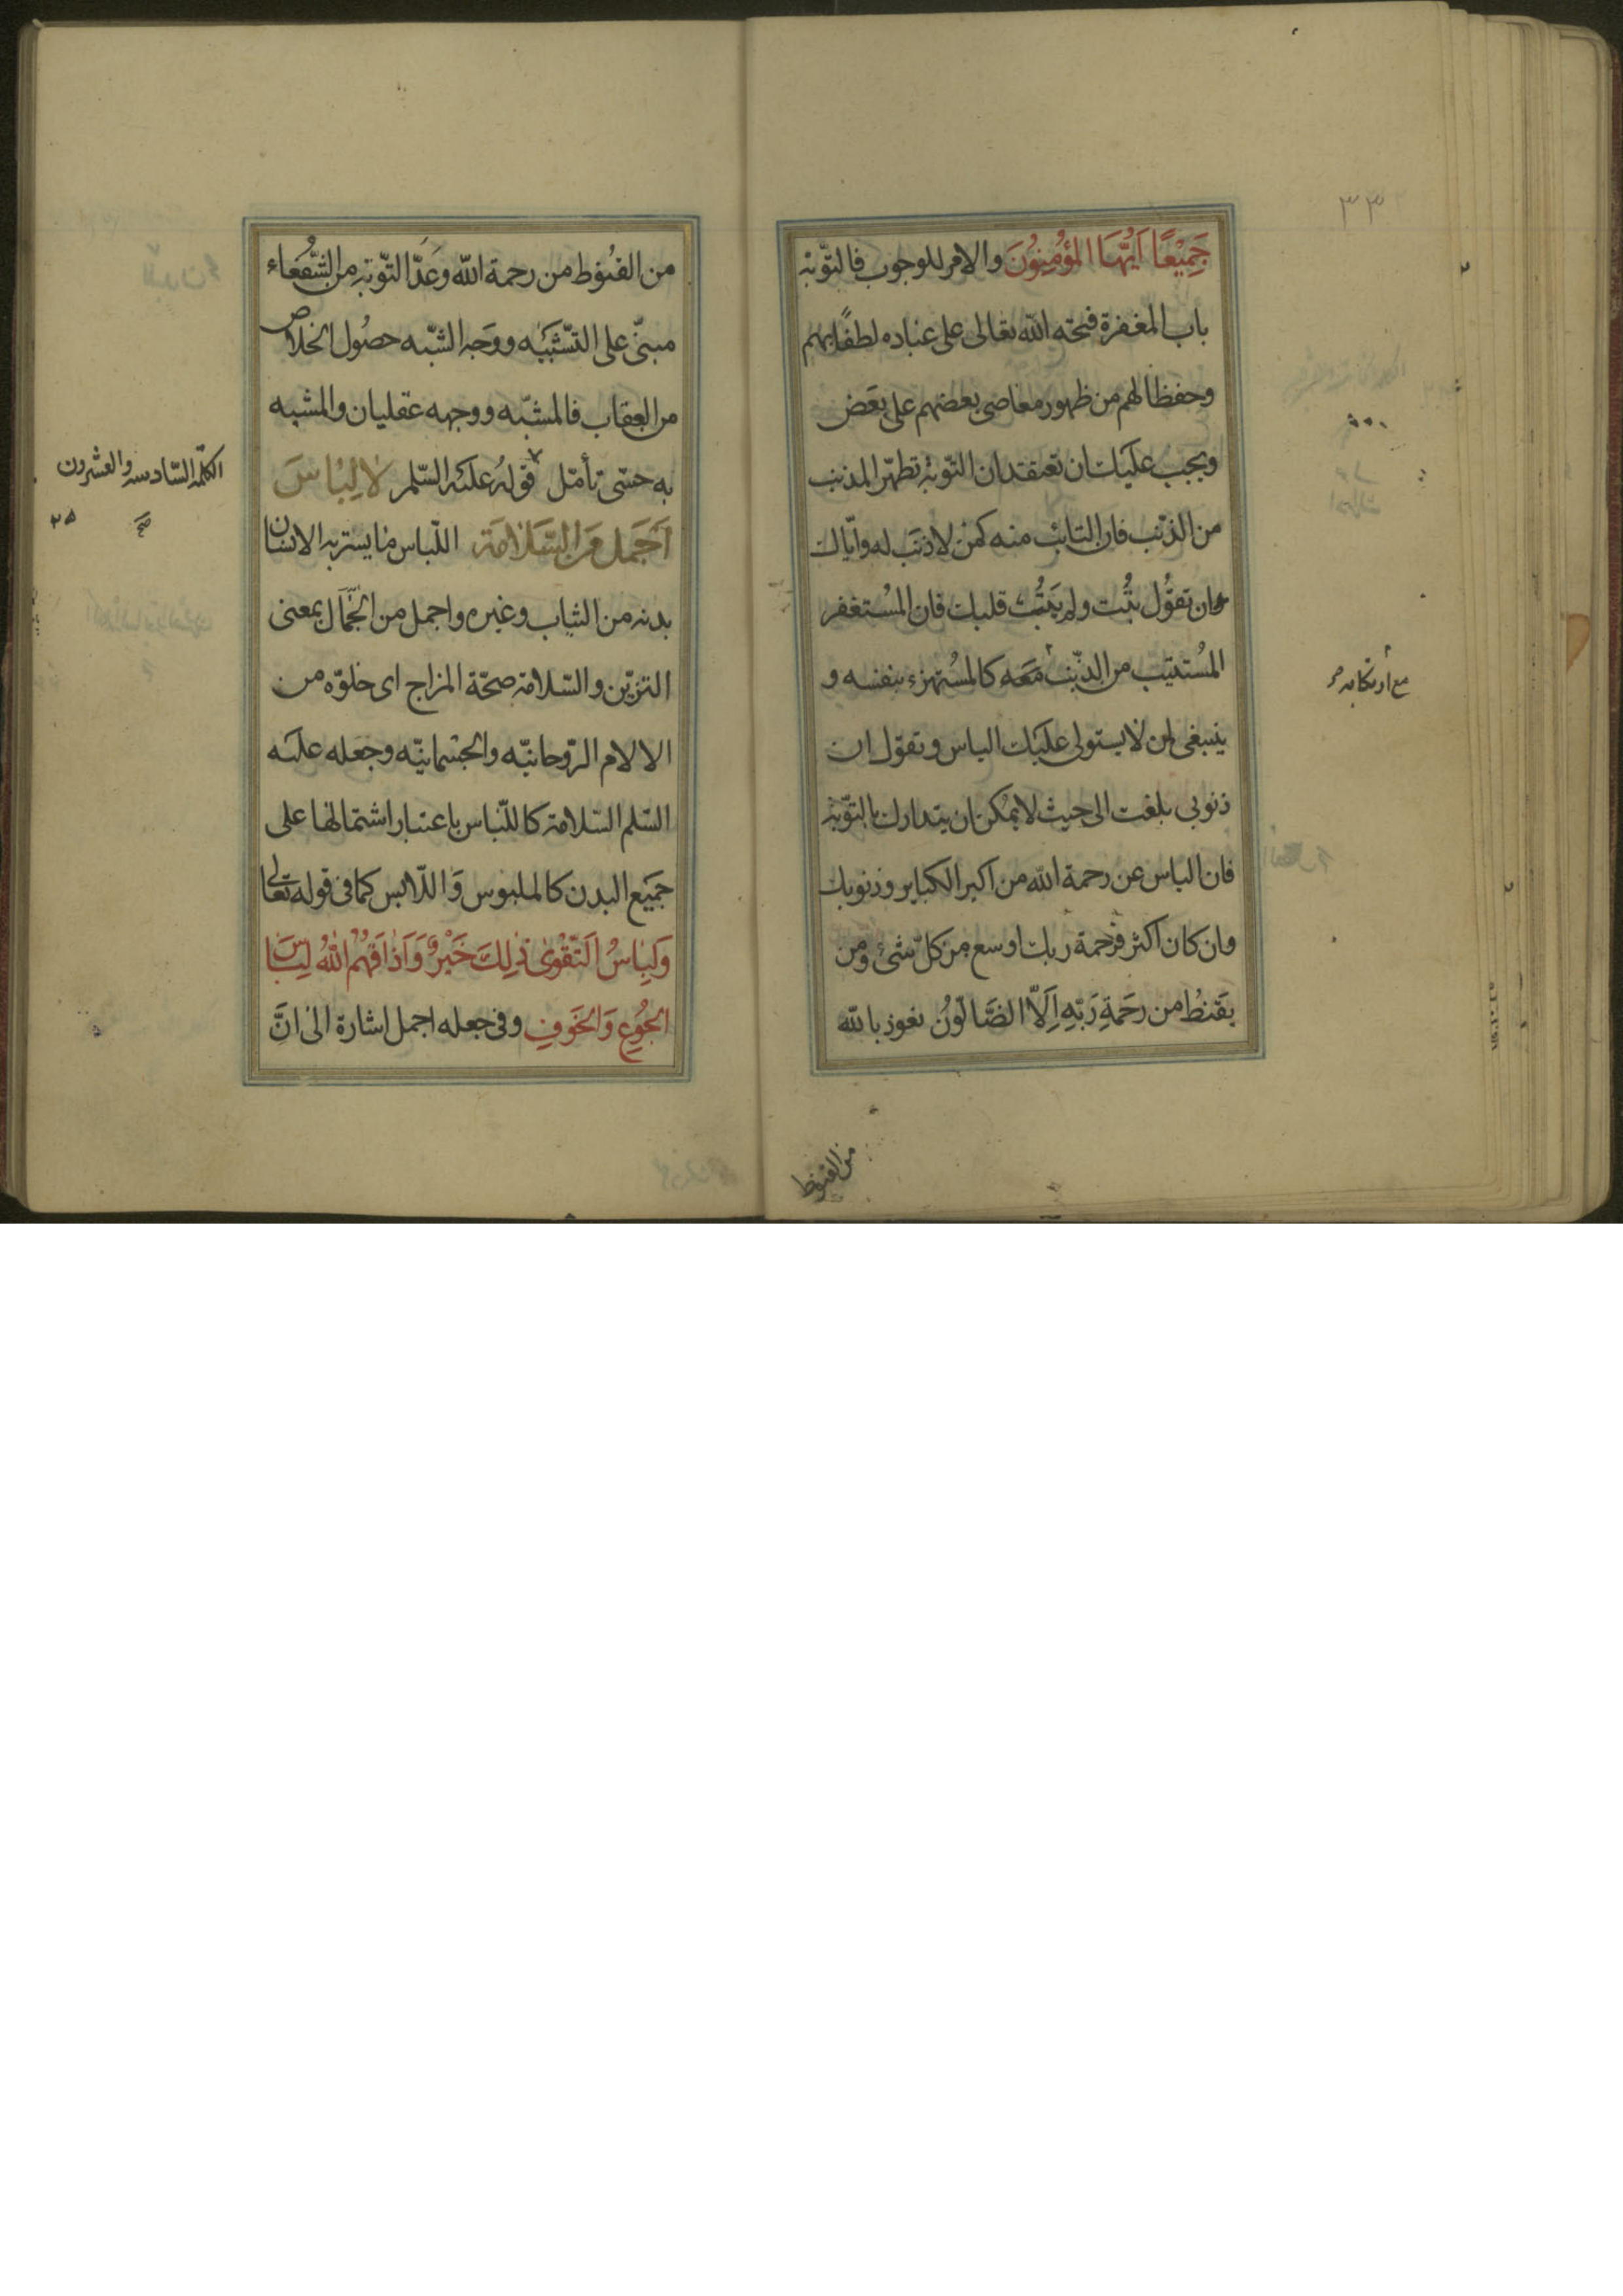 ٣٣
جَمِيْعًا اَيُّهَا المُؤْمِنُوْنَ والامر للوجوب فالتّوبة
باب المغفرة فتحه الله تعالى على عباده لطفًا بهم
وحفظا لهم من ظهور معاصى بعضهم على بعض
ويجب عليك ان تعتقد ان التّوبة تطهّر المذنب
من الذّنب فان التائب منه كمن لا ذنب له وايّاك
وان تقول تُبْت ولم يَتُبْ قلبك فان المُستغفر
المُستتيب من الذّنب مَعَه كالمُستهزء بنفسه و
ينبغى ان لا يستولى عليك الياس وتقول ان
ذنوبى بلغت الى حيث لا يمكن ان يتدارك بالتّوبة
فان الياس عن رحمة الله من اكبر الكباير وذنوبك
وان كان اكثر فرحمة ربك اوسع من كلّ شئ ومن
يَقنطُ من رحَمةِ رَبّهِ اِلّا الضَّالّونَ نعوذ بالله
مع ارتكابه
من القنوط
من القنوط من رحمة الله وعَدَّ التّوبة من الشُّفعَاء
مبنىّ على التّشبيه ووجه الشّبه حصُول الخلاص
من العقاب فالمشبّه ووجهه عقليان والمشبه
به حسّى تأمّل قولهُ عليه السّلم لا لِبَاسَ
اَجْمَل مِنَ السَّلَامَة اللّباس ما يستر به الانسان
بدنه من الثياب وغيره واجمل من الجَمَال بمعنى
التزيّن والسّلامة صحّة المزاج اى خلوّه من
الالام الرّوحانيّه والجسمانيّه وجعله عليه
السّلم السّلامة كاللّباس باعتبار اشتمالها على
جَميع البدن كالملبوس وَاللّابس كما فى قوله تعالى
وَلِبَاسُ التَّقْوىٰ ذٰلِكَ خَيْرٌ وَاَذَاقَهُمُ اللهُ لِبَاسَ
الجُوْعِ وَالخَوفِ وفى جعله اجمل اشارة الى انَّ
الكلمة السّادسه والعشرون
صح
٢٥